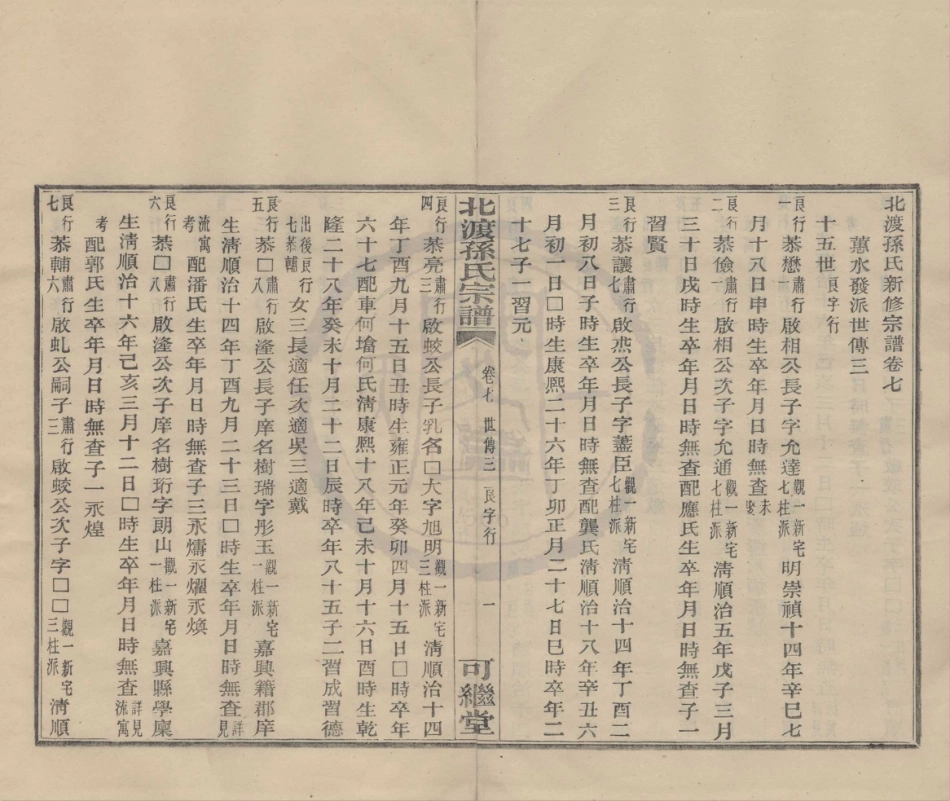 北渡孫氏新修宗譜卷七
蕙水發派世傳三
十五世良字行
良行一恭懋肅行一啟相公長子字允達觀一新宅七柱派明崇禎十四年辛巳七
月十八日申時生卒年月日時無查未娶
良行二恭儉肅行一啟相公次子字允通觀一新宅七柱派清順治五年戊子三月
三十日戌時生卒年月日時無查配應氏生卒年月日時無查子一
習賢
良行三恭讓肅行七啟燕公長子字藎臣觀一新宅七柱派清順治十四年丁酉二
月初八日子時生卒年月日時無查配龔氏清順治十八年辛丑六
月初一日□時生康熙二十六年丁卯正月二十七日巳時卒年二
十七子一習元
北渡孫氏宗譜 卷七 世傳三 良字行 一 可繼堂
良行四恭亮肅行三啟蛟公長子乳名□大字旭明觀一新宅三柱派清順治十四
年丁酉九月十五日丑時生雍正元年癸卯四月十五日□時卒年
六十七配車何墖何氏清康熙十八年己未十月十六日酉時生乾
隆二十八年癸未十月二十二日辰時卒年八十五子二習成習德
出後良行七恭輔女三長適任次適吳三適戴
良行五恭□肅行八啟漋公長子庠名樹瑞字彤玉觀一新宅一柱派嘉興籍郡庠
生清順治十四年丁酉九月二十三日□時生卒年月日時無查詳見
流寓考配潘氏生卒年月日時無查子三永燽永燿永煥
良行六恭□肅行八啟漋公次子庠名樹珩字朗山觀一新宅一柱派嘉興縣學廩
生清順治十六年己亥三月十二日□時生卒年月日時無查詳見流寓
考配郭氏生卒年月日時無查子一永煌
良行七恭輔肅行六啟虬公嗣子肅行三啟蛟公次子字□□觀一新宅三柱派清順